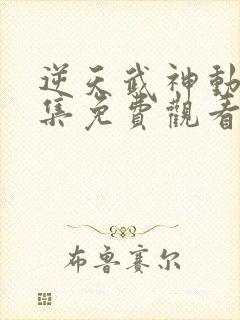 逆天武神動
集免費觀看
布魯賽尔